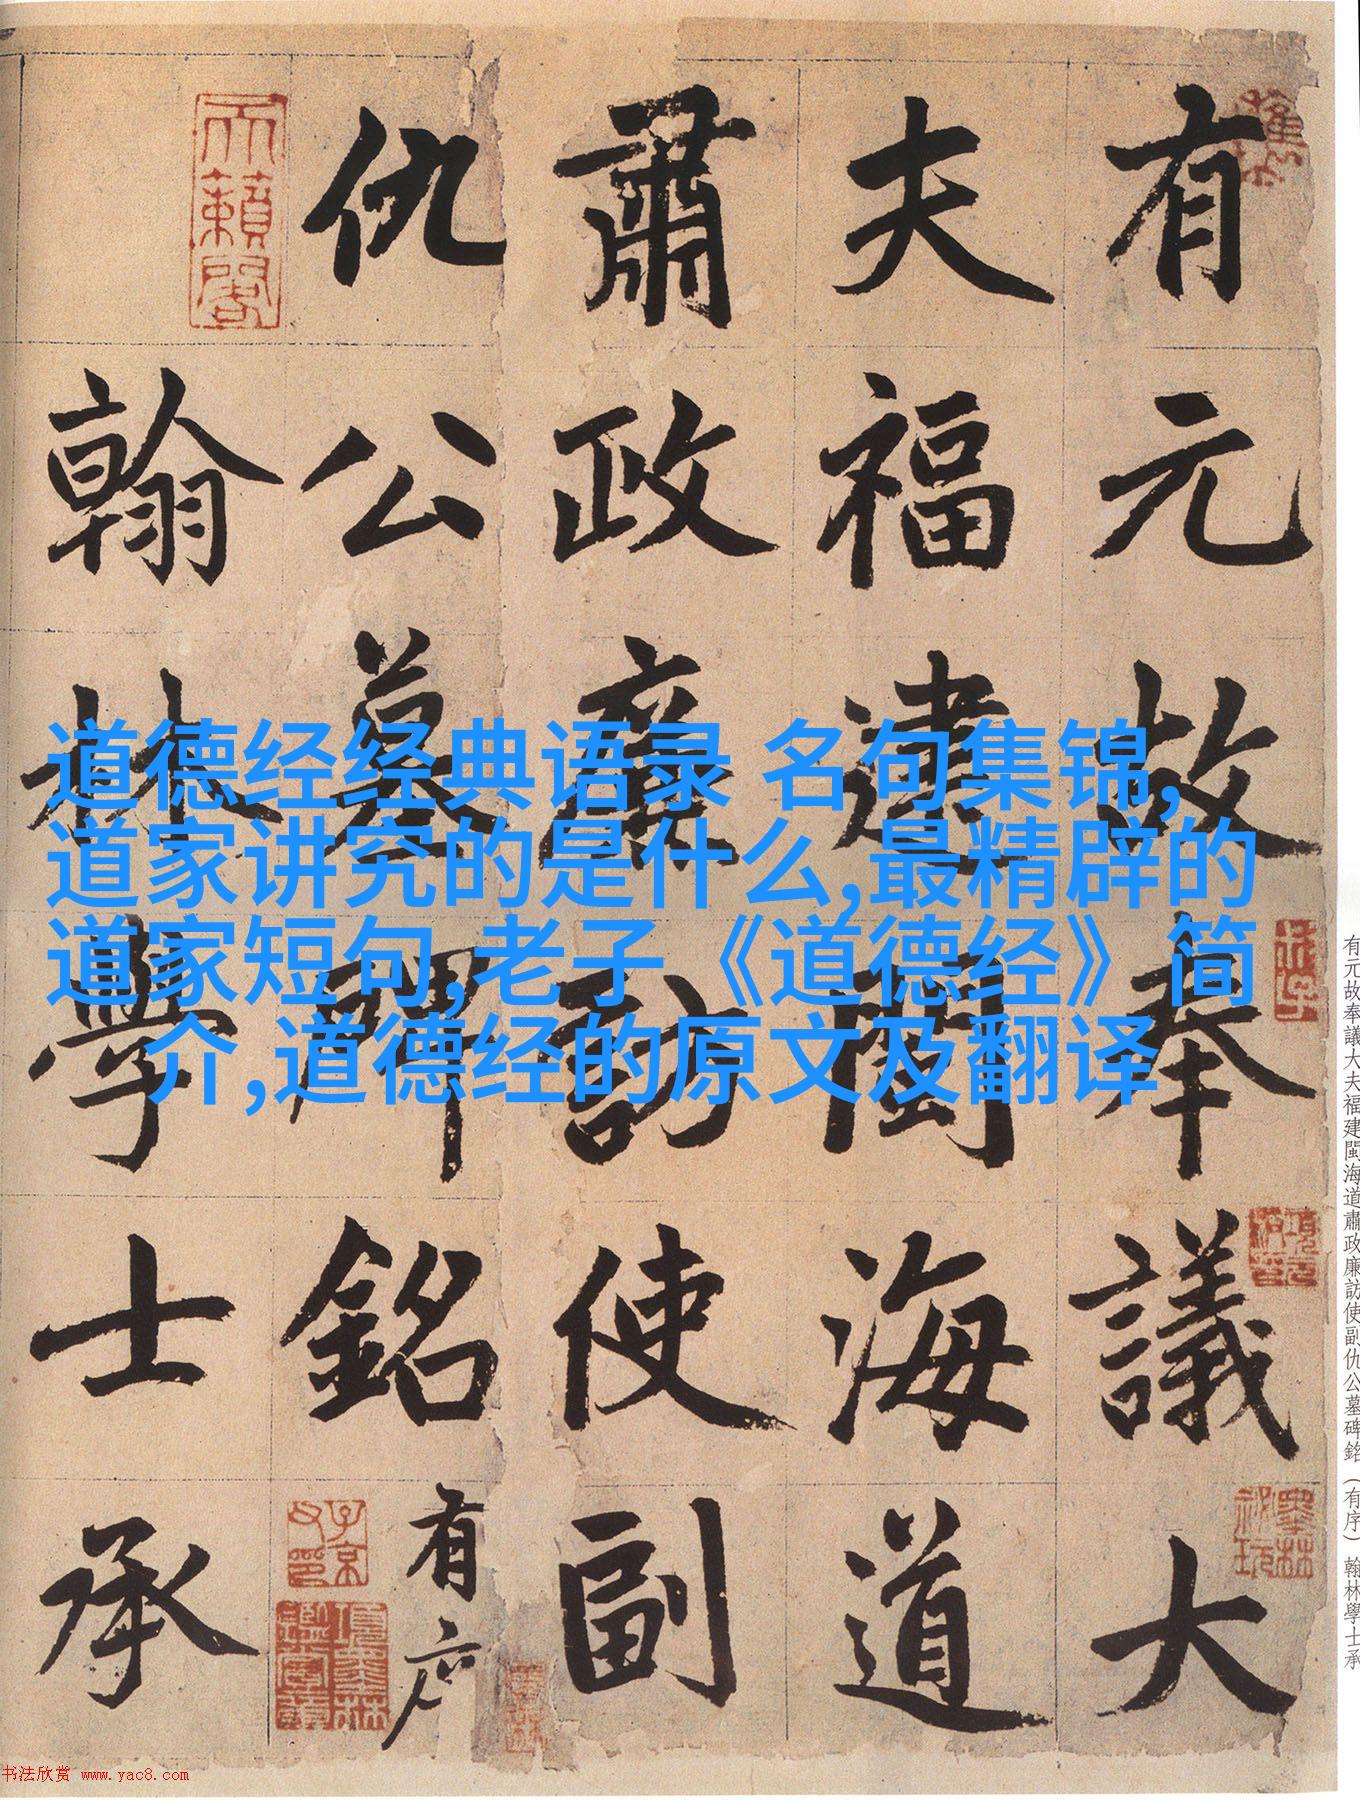 有元故奉議大
夫福建閩海道
肅政廉訪使副
仇公墓碑銘有序
翰林學士承
道德经经典语录 名句集锦,
道家讲究的是什么,最精辟的
道家短句,老子《道德经》简
介,道德经的原文及翻译
天籟閣
子京父印
項元汴印
墨林祕玩
有元故奉議大夫福建閩海道肅政廉訪使副仇公墓碑銘(有序) 翰林學士承
书法欣赏 www.yac8.com